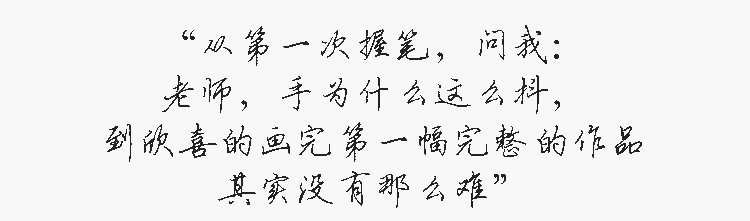 “从第一次握笔，问我：
老师，手为什么这么抖，
到欣喜的画完第一幅完整的作品
其实没有那么难”